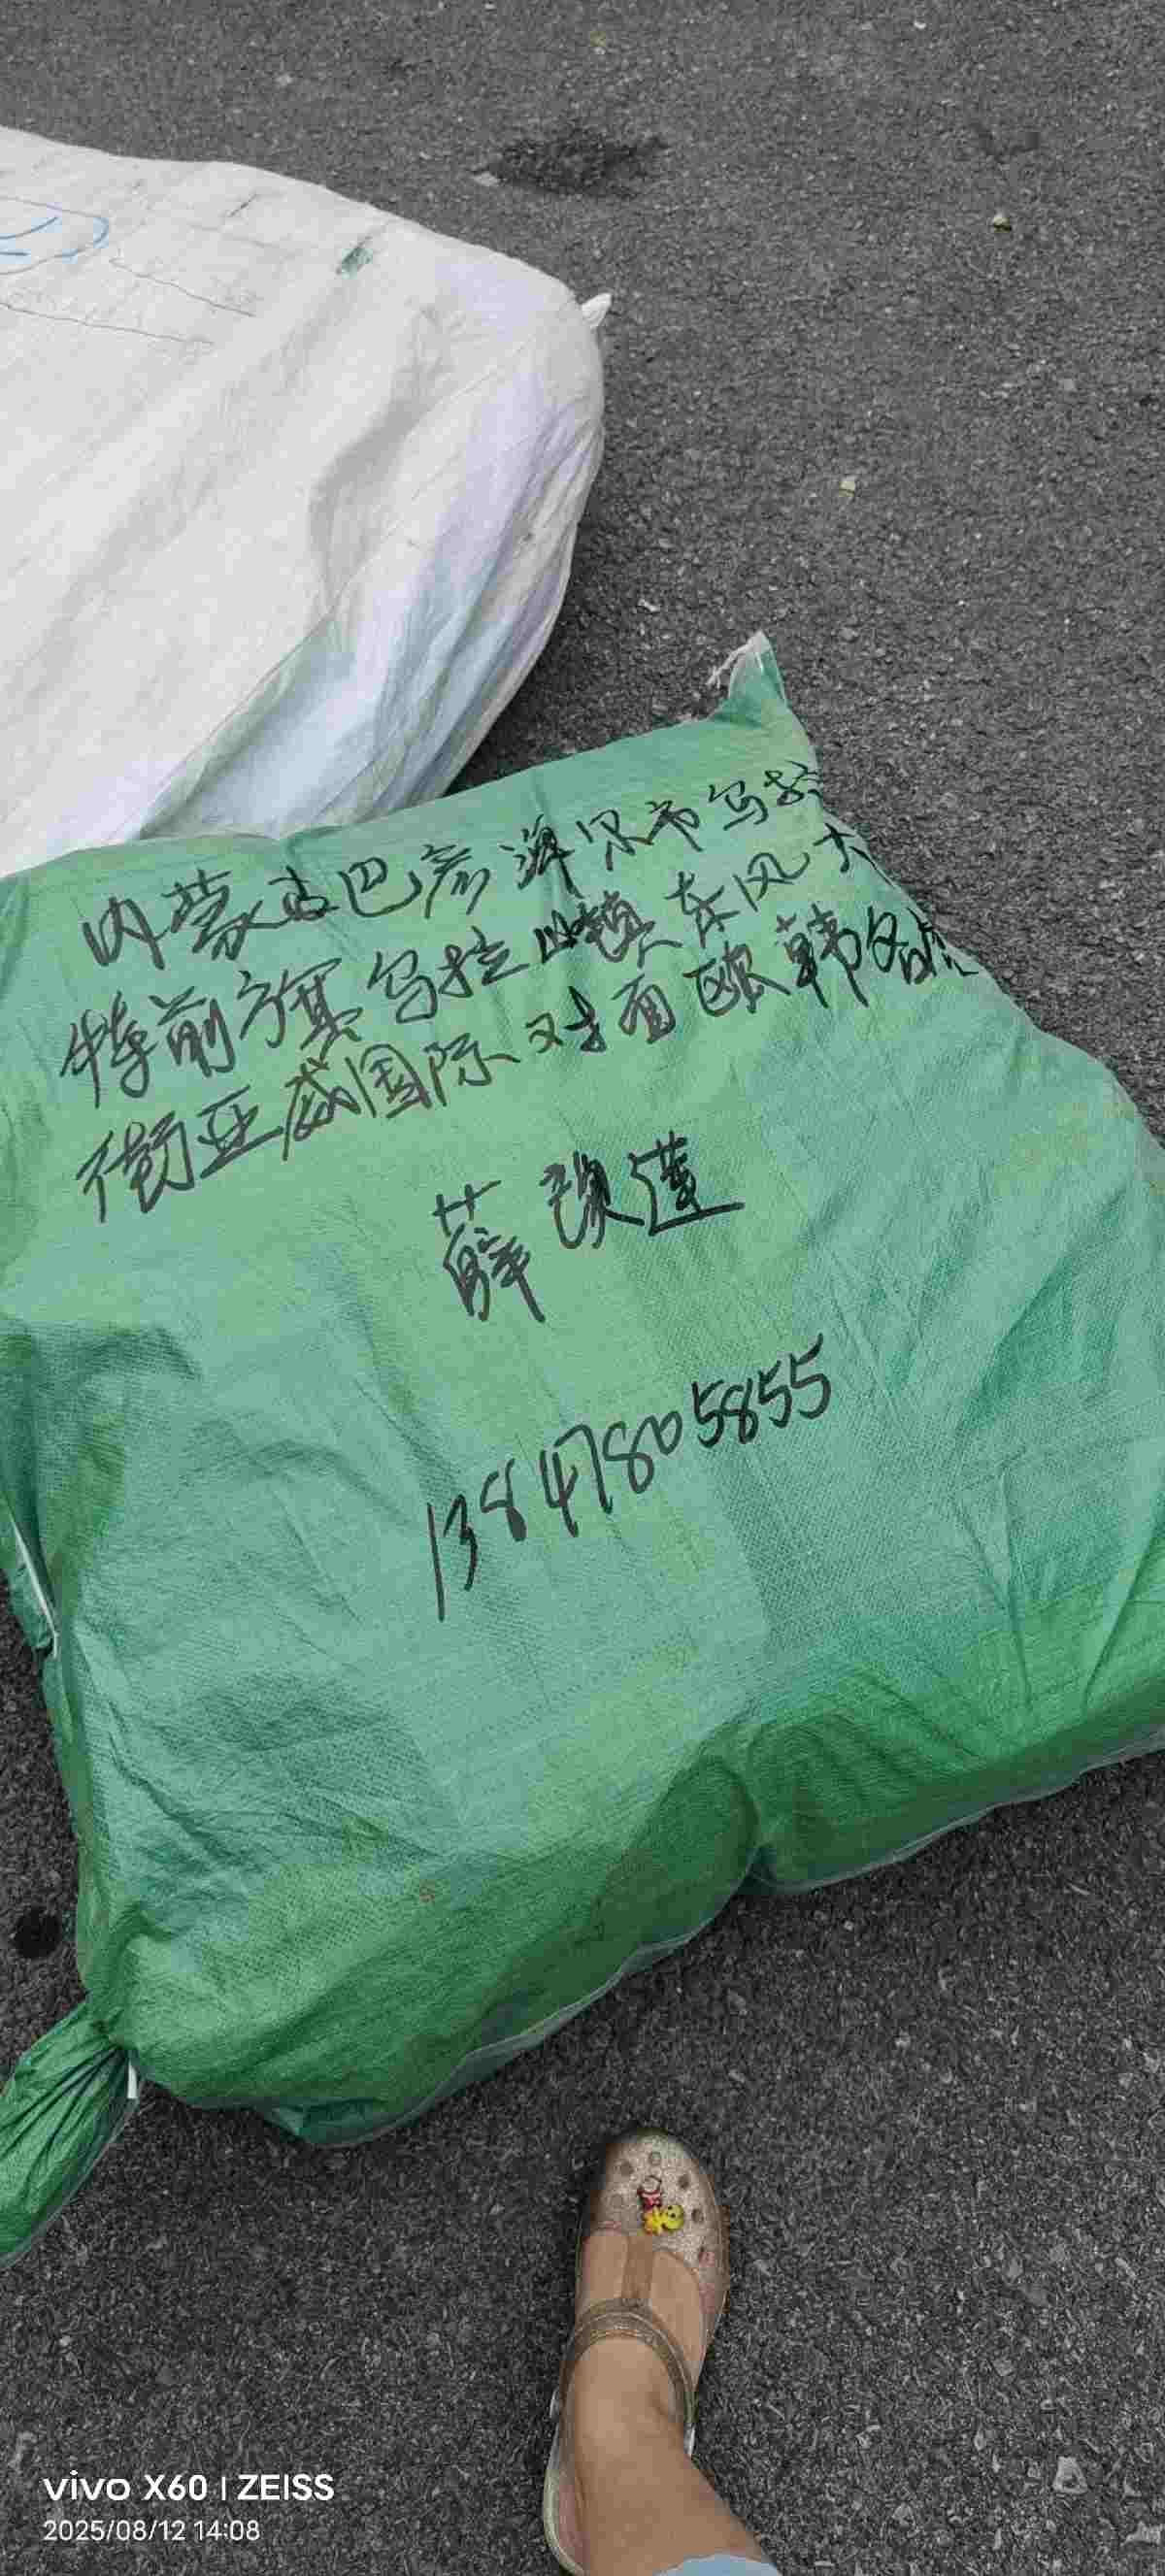 内蒙古巴彦淖尔市乌拉
特前旗乌拉山镇东风大
街亚威国际对面欧韩名
薛改莲
13847805855
vivo X60 | ZEISS
2025/08/12 14:08